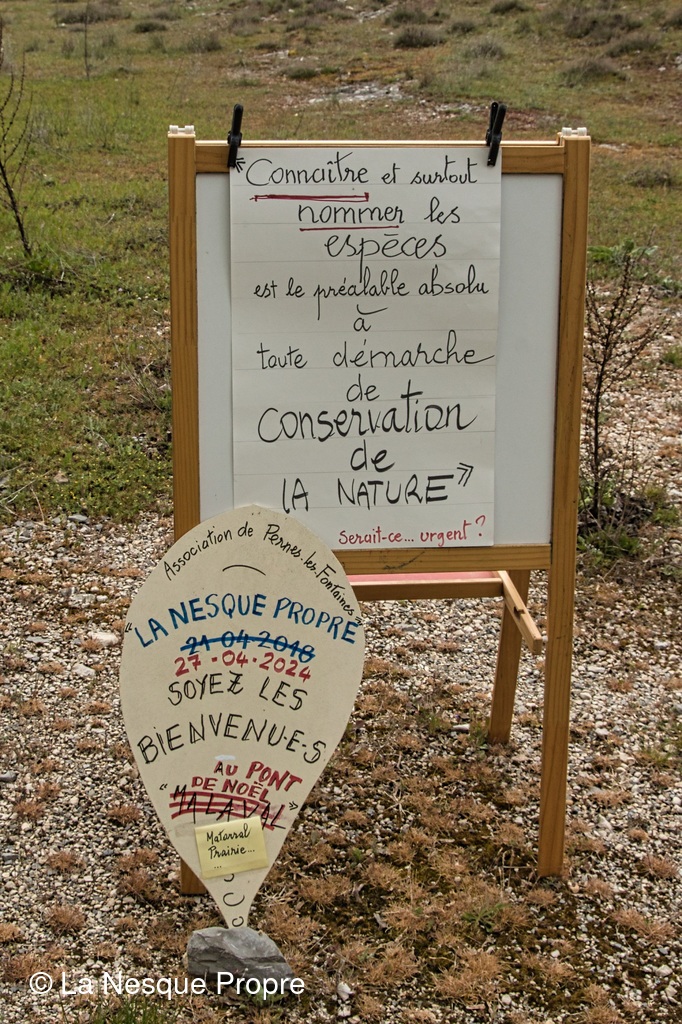 "Connaître et surtout
nommer les
espèces
est le préalable absolu
à
toute démarche
de
conservation
de
LA NATURE"
Serait-ce... urgent ?
Association de Pernes-les-Fontaines
"LA NESQUE PROPRE"
21 04 2018
27-04-2024
SOYEZ LES
BIENVENU-E-S
AU PONT
DE NOËL
"MALAVAL"
Matarral
Prairie...
...
© La Nesque Propre